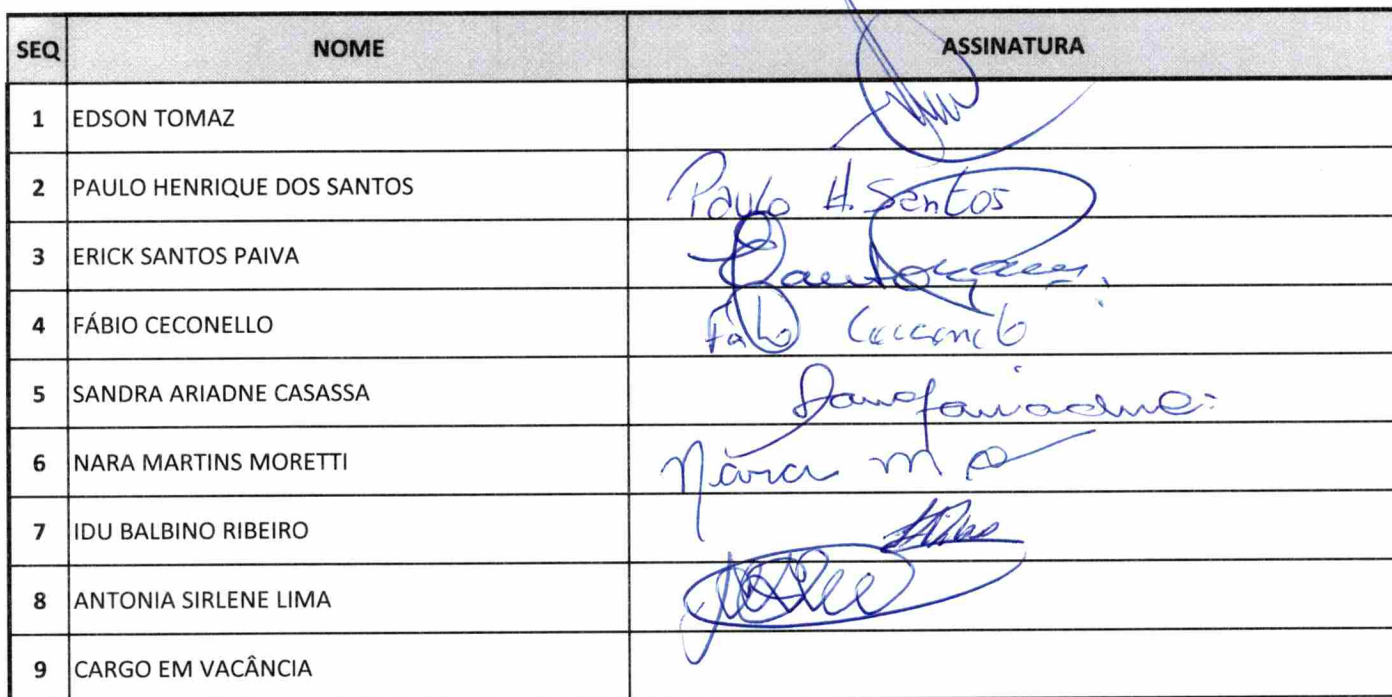 SEQ NOME ASSINATURA
1 EDSON TOMAZ
2 PAULO HENRIQUE DOS SANTOS Paulo H. Santos
3 ERICK SANTOS PAIVA
4 FÁBIO CECONELLO Fábio
5 SANDRA ARIADNE CASASSA
6 NARA MARTINS MORETTI Nara M
7 IDU BALBINO RIBEIRO
8 ANTONIA SIRLENE LIMA
9 CARGO EM VACÂNCIA